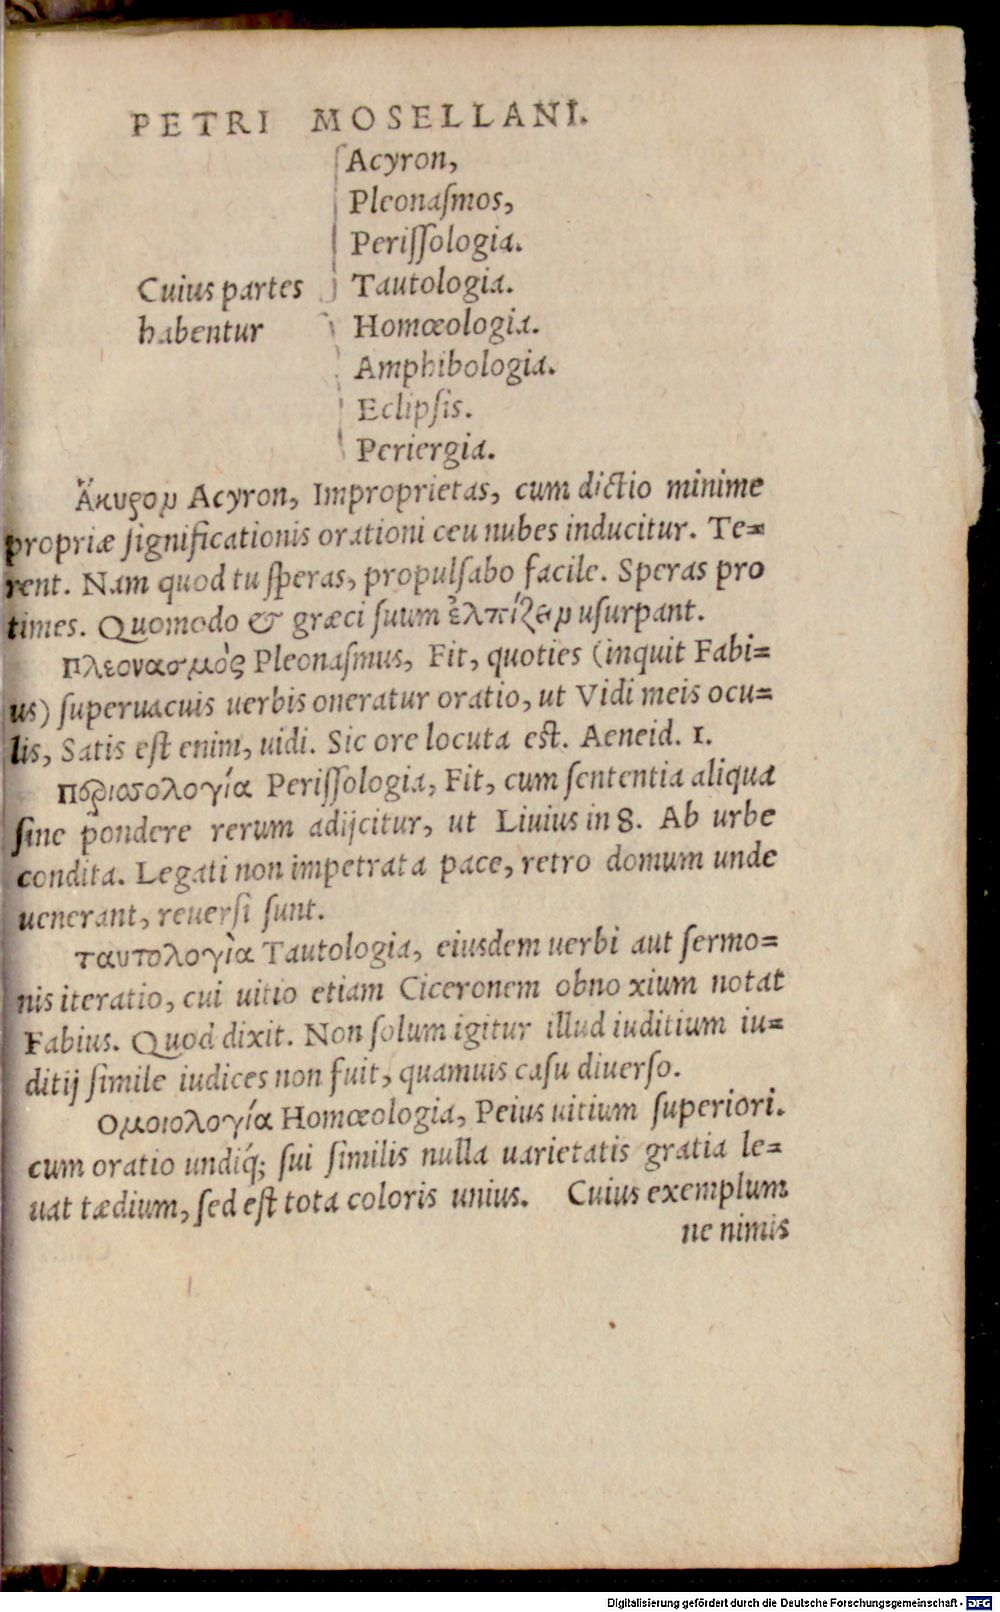 PETRI MOSELLANI.
Acyron,
Pleonaſmos,
Periſſologia.
Cuius partes Tautologia.
habentur Homœologia.
Amphibologia.
Eclipſis.
Periergia.
Ἄκυρον Acyron, Improprietas, cum dictio minime
propriæ ſignificationis orationi ceu nubes inducitur. Te=
rent. Nam quod tu ſperas, propulſabo facile. Speras pro
times. Quomodo & græci ſuum ἐλπίζειν uſurpant.
Πλεονασμὸς Pleonaſmus, Fit, quoties (inquit Fabi=
us) ſuperuacuis uerbis oneratur oratio, ut Vidi meis ocu=
lis, Satis eſt enim, uidi. Sic ore locuta eſt. Aeneid. 1.
Περισσολογία Periſſologia, Fit, cum ſententia aliqua
ſine pondere rerum adijcitur, ut Liuius in 8. Ab urbe
condita. Legati non impetrata pace, retro domum unde
uenerant, reuerſi ſunt.
ταυτολογὶα Tautologia, eiusdem uerbi aut ſermo=
nis iteratio, cui uitio etiam Ciceronem obno xium notat
Fabius. Quod dixit. Non ſolum igitur illud iuditium iu=
ditij ſimile iudices non fuit, quamuis caſu diuerſo.
Ομοιολογία Homœologia, Peius uitium ſuperiori.
cum oratio undiq́; ſui ſimilis nulla uarietatis gratia le=
uat tædium, ſed eſt tota coloris unius. Cuius exemplum
ne nimis
Digitalisierung gefördert durch die Deutsche Forschungsgemeinschaft - DFG